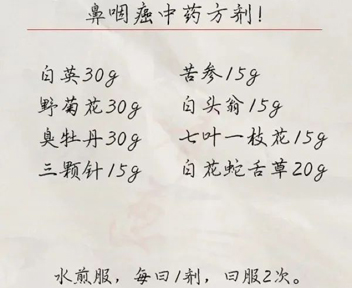 鼻咽癌中药方剂!
白英30g 苦参15g
野菊花30g 白头翁15g
臭牡丹30g 七叶一枝花15g
三颗针15g 白花蛇舌草20g
水煎服，每日1剂，日服2次。